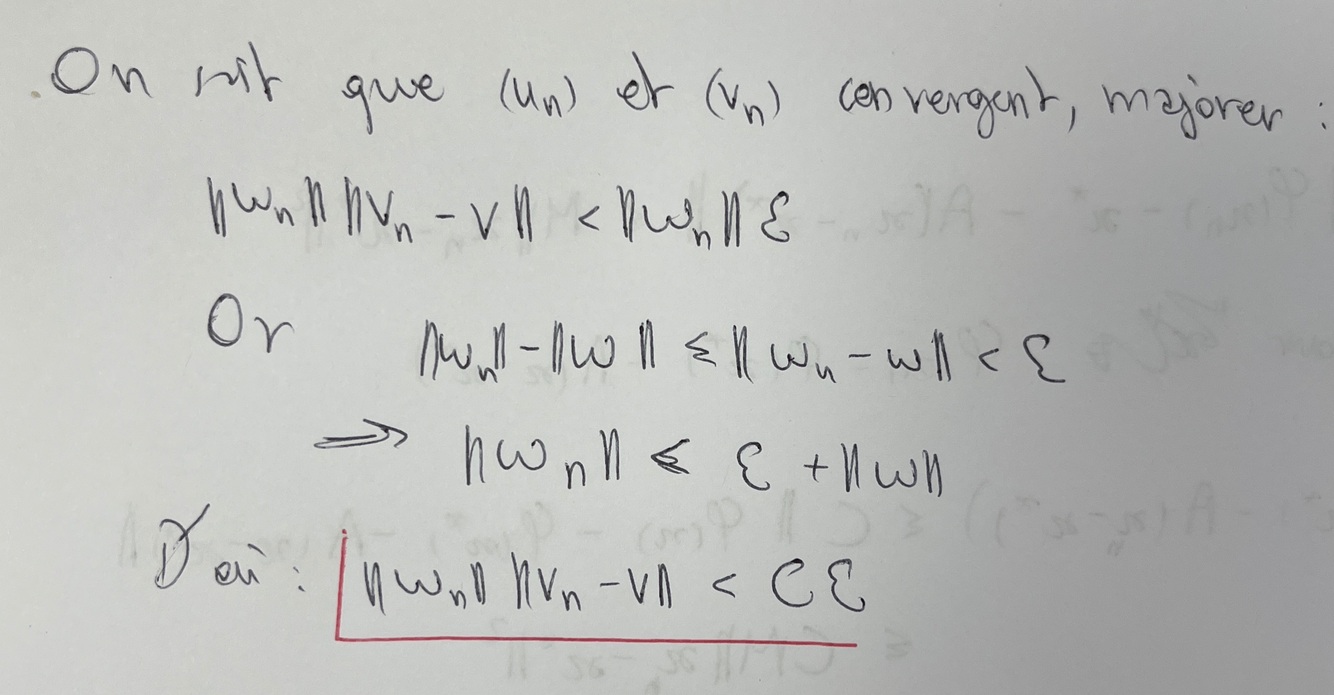 On sait que (uₙ) et (vₙ) convergent, majorer :
‖wₙ‖ ‖vₙ - v‖ < ‖wₙ‖ ε
Or ‖wₙ‖ - ‖w‖ ≤ ‖wₙ - w‖ < ε
⇒ ‖wₙ‖ ≤ ε + ‖w‖
D'où : ‖wₙ‖ ‖vₙ - v‖ < Cε